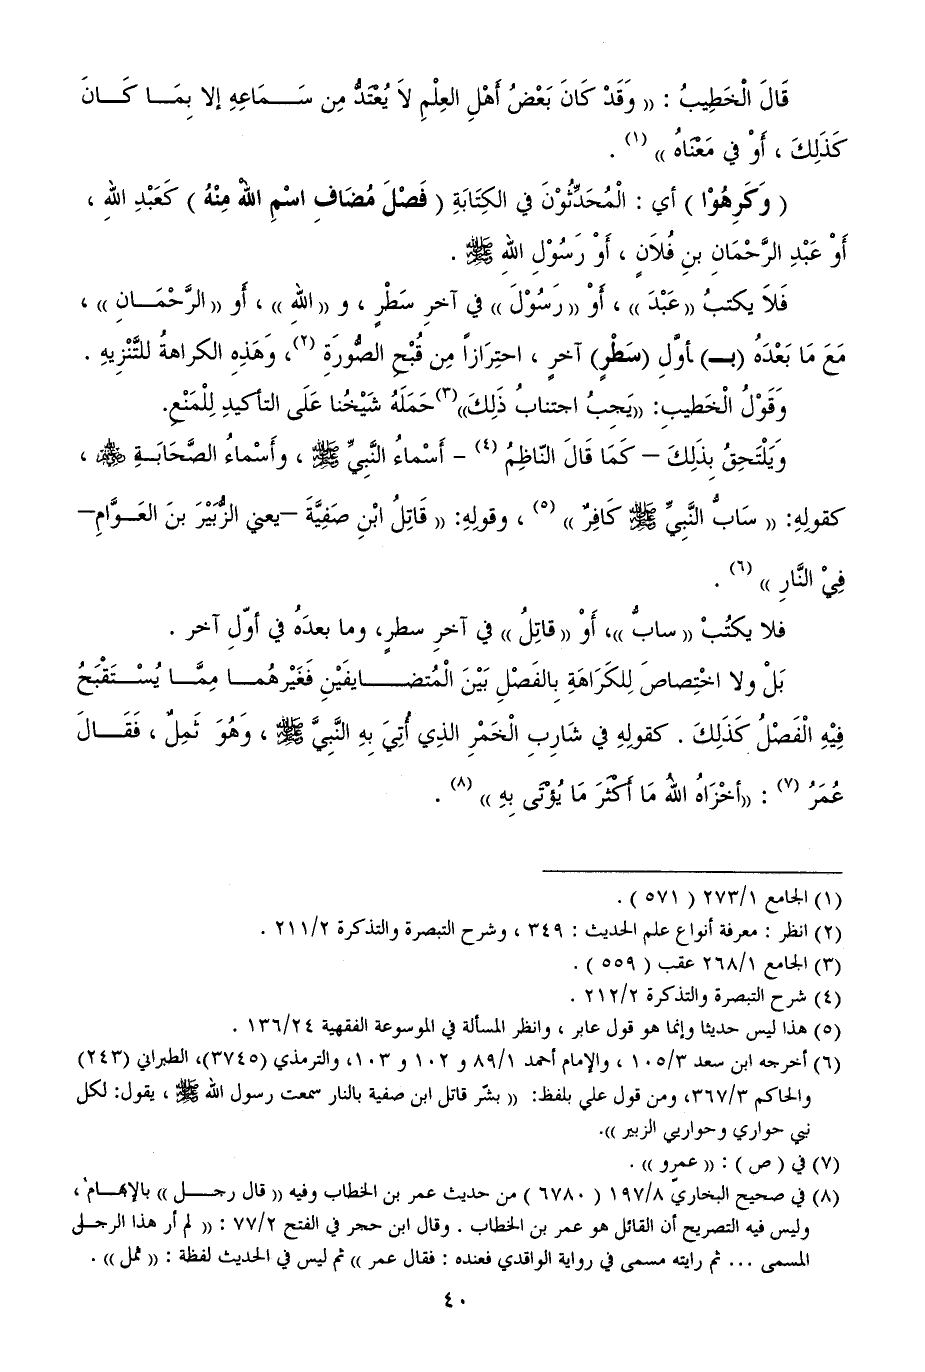 قَالَ الْخَطِيبُ : « وَقَدْ كَانَ بَعْضُ أَهْلِ العِلْمِ لاَ يُعْتَدُّ مِن سَمَاعِهِ إلا بِمَا كَانَ
كَذَلِكَ ، أَوْ في مَعْنَاهُ » (١) .
( وَكَرِهُوْا ) أي : الْمُحَدِّثُوْنَ في الكِتَابَةِ ( فَصْلَ مُضَافِ اسْمِ اللهِ مِنْهُ ) كَعَبْدِ اللهِ ،
أَوْ عَبْدِ الرَّحْمَانِ بنِ فُلاَنٍ ، أَوْ رَسُوْلِ اللهِ ﷺ .
فَلاَ يكتبُ « عَبْدَ » ، أَوْ « رَسُوْلَ » في آخرِ سَطْرٍ ، و « اللهِ » ، أَو « الرَّحْمَانِ » ،
مَعَ مَا بَعْدَهُ (بـ) ـأوَّلِ (سَطْرٍ) آخرٍ ، احتِرَازاً مِن قُبْحِ الصُّورَةِ (٢)، وَهَذِهِ الكراهةُ للتَّنْزِيهِ .
وَقَوْلُ الْخَطيبِ: «يَجبُ اجتنابُ ذَلِكَ»(٣)حَمَلَهُ شَيْخُنا عَلَى التأكيدِ لِلْمَنْعِ.
وَيَلْتَحِقُ بِذَلِكَ – كَمَا قَالَ النَّاظِمُ (٤) – أَسْمَاءُ النَّبِيِّ ﷺ ، وأَسْمَاءُ الصَّحَابَةِ ﷺ ،
كقولِهِ: « سَابُّ النَّبِيِّ ﷺ كَافِرٌ » (٥) ، وقولِهِ: « قَاتِلُ ابْنِ صَفِيَّةَ –يعني الزُّبَيْرَ بنَ العَوَّامِ–
فِيْ النَّارِ » (٦) .
فلا يكتُبْ « سابُّ »، أَوْ « قاتِلُ » في آخرِ سطرٍ، وما بعدَهُ في أوّلِ آخر .
بَلْ ولا اخْتِصاصَ لِلكَرَاهَةِ بِالفَصْلِ بَيْنَ الْمُتضَايفَيْنِ فَغَيْرهُما مِمَّا يُسْتَقْبَحُ
فِيْهِ الْفَصْلُ كَذَلِكَ . كقولِهِ في شَارِبِ الْخَمْرِ الذِي أُتِيَ بِهِ النَّبِيَّ ﷺ ، وَهُوَ ثَمِلٌ ، فَقَالَ
عُمَرُ (٧) : «أَخْزَاهُ اللهُ مَا أَكْثَرَ مَا يُؤْتَى بِهِ» (٨) .
(١) الجامع ٢٧٣/١ ( ٥٧١ ) .
(٢) انظر : معرفة أنواع علم الحديث : ٣٤٩ ، وشرح التبصرة والتذكرة ٢١١/٢ .
(٣) الجامع ٢٦٨/١ عقب ( ٥٥٩ ) .
(٤) شرح التبصرة والتذكرة ٢١٢/٢ .
(٥) هذا ليس حديثا وإنما هو قول عابر ، وانظر المسألة في الموسوعة الفقهية ١٣٦/٢٤ .
(٦) أخرجه ابن سعد ١٠٥/٣ ، والإمام أحمد ٨٩/١ و ١٠٢ و ١٠٣، والترمذي (٣٧٤٥)، الطبراني (٢٤٣)
والحاكم ٣٦٧/٣، ومن قول علي بلفظ: « بشّر قاتل ابن صفية بالنار سمعت رسول الله ﷺ ، يقول: لكل
نبي حواري وحواريي الزبير ».
(٧) في ( ص ) : « عمرو » .
(٨) في صحيح البخاري ١٩٧/٨ ( ٦٧٨٠ ) من حديث عمر بن الخطاب وفيه « قال رجل » بالإبهام ،
وليس فيه التصريح أن القائل هو عمر بن الخطاب . وقال ابن حجر في الفتح ٧٧/٢ : « لم أر هذا الرجل
المسمى ... ثم رايته مسمى في رواية الواقدي فعنده : فقال عمر » ثم ليس في الحديث لفظة : « ثمل » .
٤٠